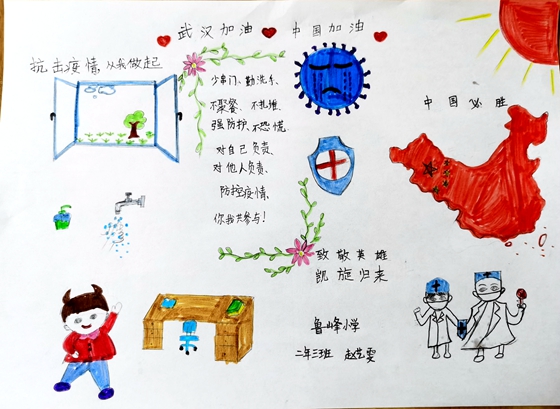 武汉加油 中国加油
抗击疫情，从我做起
少串门、勤洗手、
不聚餐、不扎堆
强防护，不恐慌
对自己负责、
对他人负责、
防控疫情、
你我共参与！
中国必胜
致敬英雄
凯旋归来
鲁峰小学
二年三班 赵艺雯